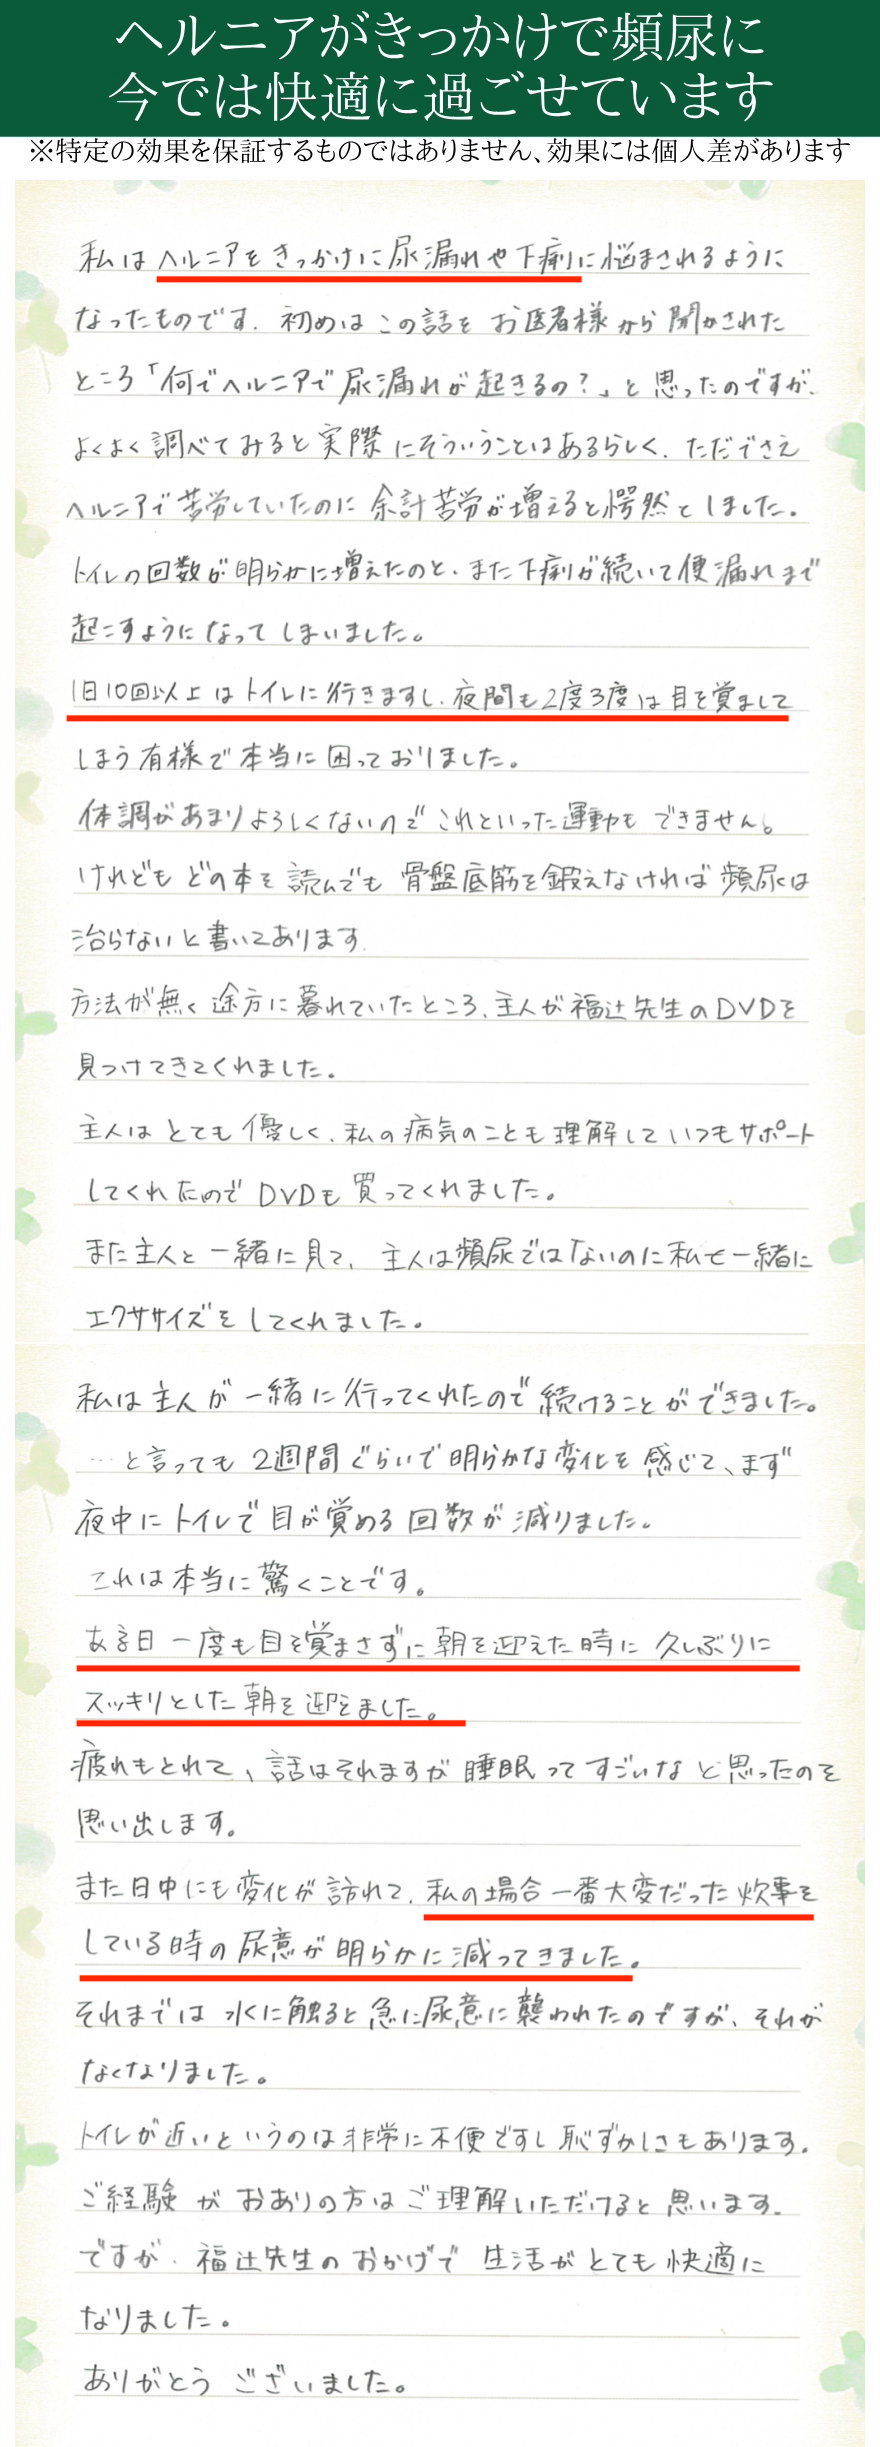 ヘルニアがきっかけで頻尿に
今では快適に過ごせています
※特定の効果を保証するものではありません、効果には個人差があります
私はヘルニアをきっかけに尿漏れや下痢に悩まされるように
なったものです。初めはこの話をお医者様から聞かされた
ところ「何でヘルニアで尿漏れが起きるの?」と思ったのですが、
よくよく調べてみると実際にそういうことはあるらしく、ただでさえ
ヘルニアで苦労していたのに余計苦労が増えると愕然としました。
トイレの回数が明らかに増えたのと、また下痢が続いて便漏れまで
起こすようになってしまいました。
1日10回以上はトイレに行きますし、夜間も2度3度は目を覚まして
しまう有様で本当に困っておりました。
体調があまりよろしくないのでこれといった運動もできません。
けれどもどの本を読んでも骨盤底筋を鍛えなければ頻尿は
治らないと書いてあります。
方法が無く途方に暮れていたところ、主人が福辻先生のDVDを
見つけてきてくれました。
主人はとても優しく、私の病気のことも理解していつもサポート
してくれたのでDVDも買ってくれました。
また主人と一緒に見て、主人は頻尿ではないのに私と一緒に
エクササイズをしてくれました。
私は主人が一緒に行ってくれたので続けることができました。
…と言っても2週間ぐらいで明らかな変化を感じて、まず
夜中にトイレで目が覚める回数が減りました。
これは本当に驚くことです。
ある日一度も目を覚まさずに朝を迎えた時に久しぶりに
スッキリとした朝を迎えました。
疲れもとれて、話はそれますが睡眠ってすごいなと思ったのを
思い出します。
また日中にも変化が訪れて、私の場合一番大変だった炊事を
している時の尿意が明らかに減ってきました。
それまでは水に触ると急に尿意に襲われたのですが、それが
なくなりました。
トイレが近いというのは非常に不便ですし恥ずかしさもあります。
ご経験がおありの方はご理解いただけると思います。
ですが、福辻先生のおかげで生活がとても快適に
なりました。
ありがとうございました。